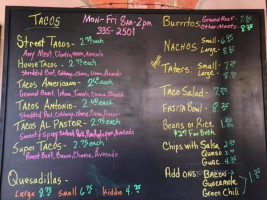 TACOS
MON-FRI 8AM-2PM
335-2501
STREET TACOS - 2.75 each
Any Meat, Cilantro, onion, Avocado
HOUSE TACOS - 2.75 each
Shredded Beef, Cabbage, Cheese, Crema, Avocado
TACOS AMERICANO - 2.25 each
Ground Beef, Lettuce, Tomato, Crema, Cheese
TACOS ANTONIO - 2.75 each
Shredded Pork, Cabbage, Cheese, Crema, Avocado
TACOS AL PASTOR - 2.75 each
Sweet & Spicy Pork, Avocado
SUPER TACOS - 2.75 each
Roast Beef, Beans, Cheese, Avocado
QUESADILLAS -
LARGE 8.75 SMALL 6.75 KIDDIE 4.75
BURRITOS
Ground Beef
Other Meats
NACHOS
Small -
Large -
TATERS
Small -
Large -
TACO SALAD -
FAJITA BOWL -
BEANS OR RICE
For Both
CHIPS WITH SALSA
Queso
Guac
ADD ONS
BACON
GUACAMOLE
GREEN CHILI